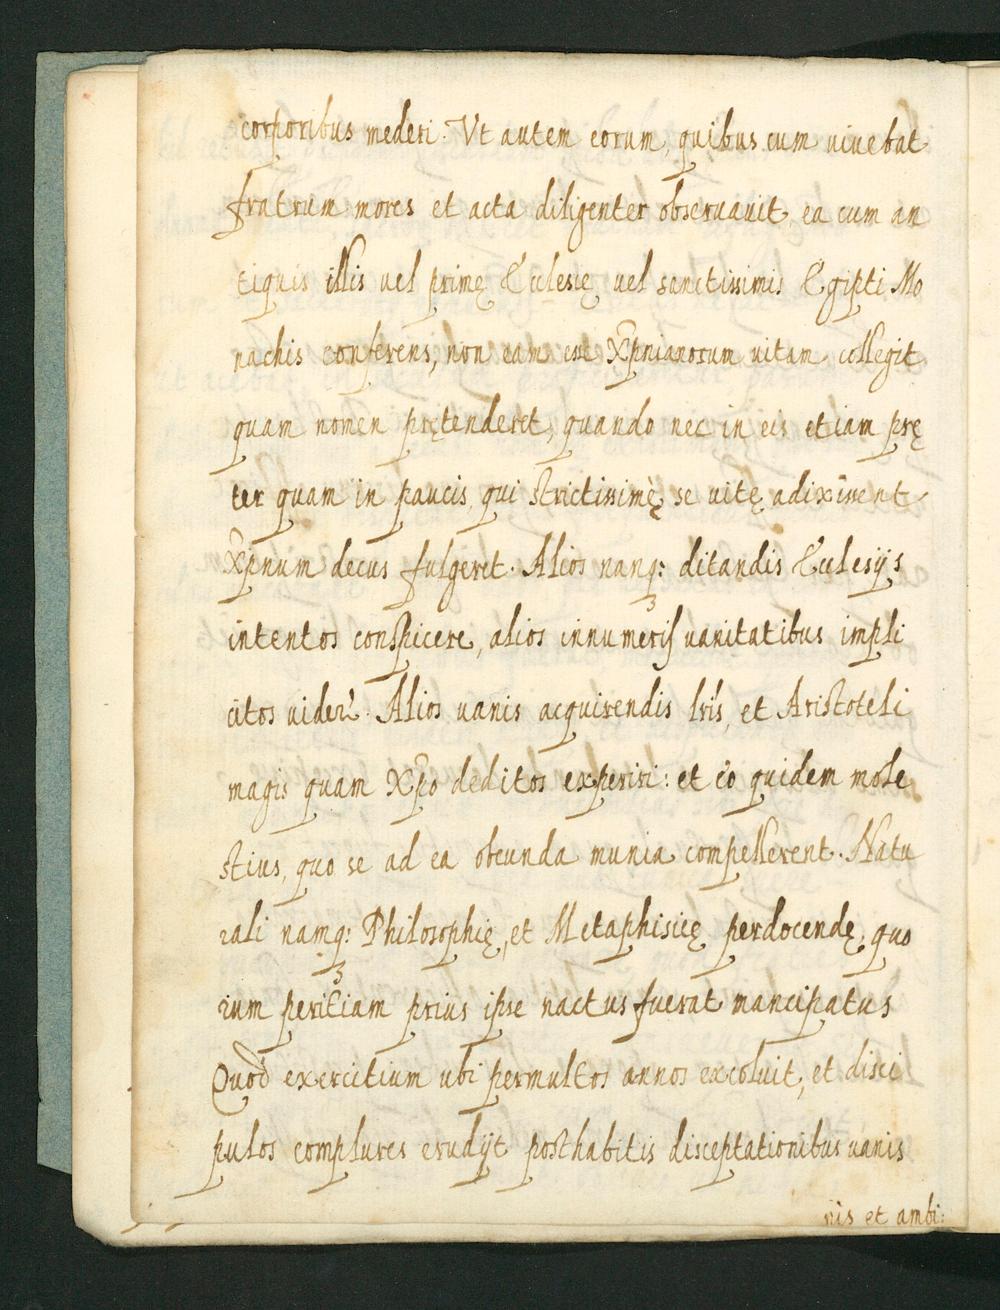 corporibus mederi. Vt autem eorum, quibus cum uiuebat
fratrum mores et acta diligenter obseruauit, ea cum an
tiquis illis uel primę Ecclesię uel sanctissimis Egipti Mo
nachis conferens, non eam esse Xp̃nianorum uitam collegit
quam nomen prętenderet, quando nec in eis etiam prę
ter quam in paucis, qui strictissimè se uitę adixissent
Xp̃num decus fulgeret. Alios namq: ditandis Ecclesijs
intentos conspicere, alios innumeris uanitatibus impli
citos uider̃. Alios uanis acquirendis lr̃is, et Aristoteli
magis quam Xp̃o deditos experiri: et eò quidem mole
stius, quo se ad ea obeunda munia compellerent. Natu
rali namq: Philosophię, et Metaphisicę perdocendę, quo
rum peritiam prius ipse nactus fuerat mancipatus
Quod exercitium ubi permultos annos excoluit, et disci
pulos complures erudijt posthabitis disceptationibus uanis
nis et ambi: